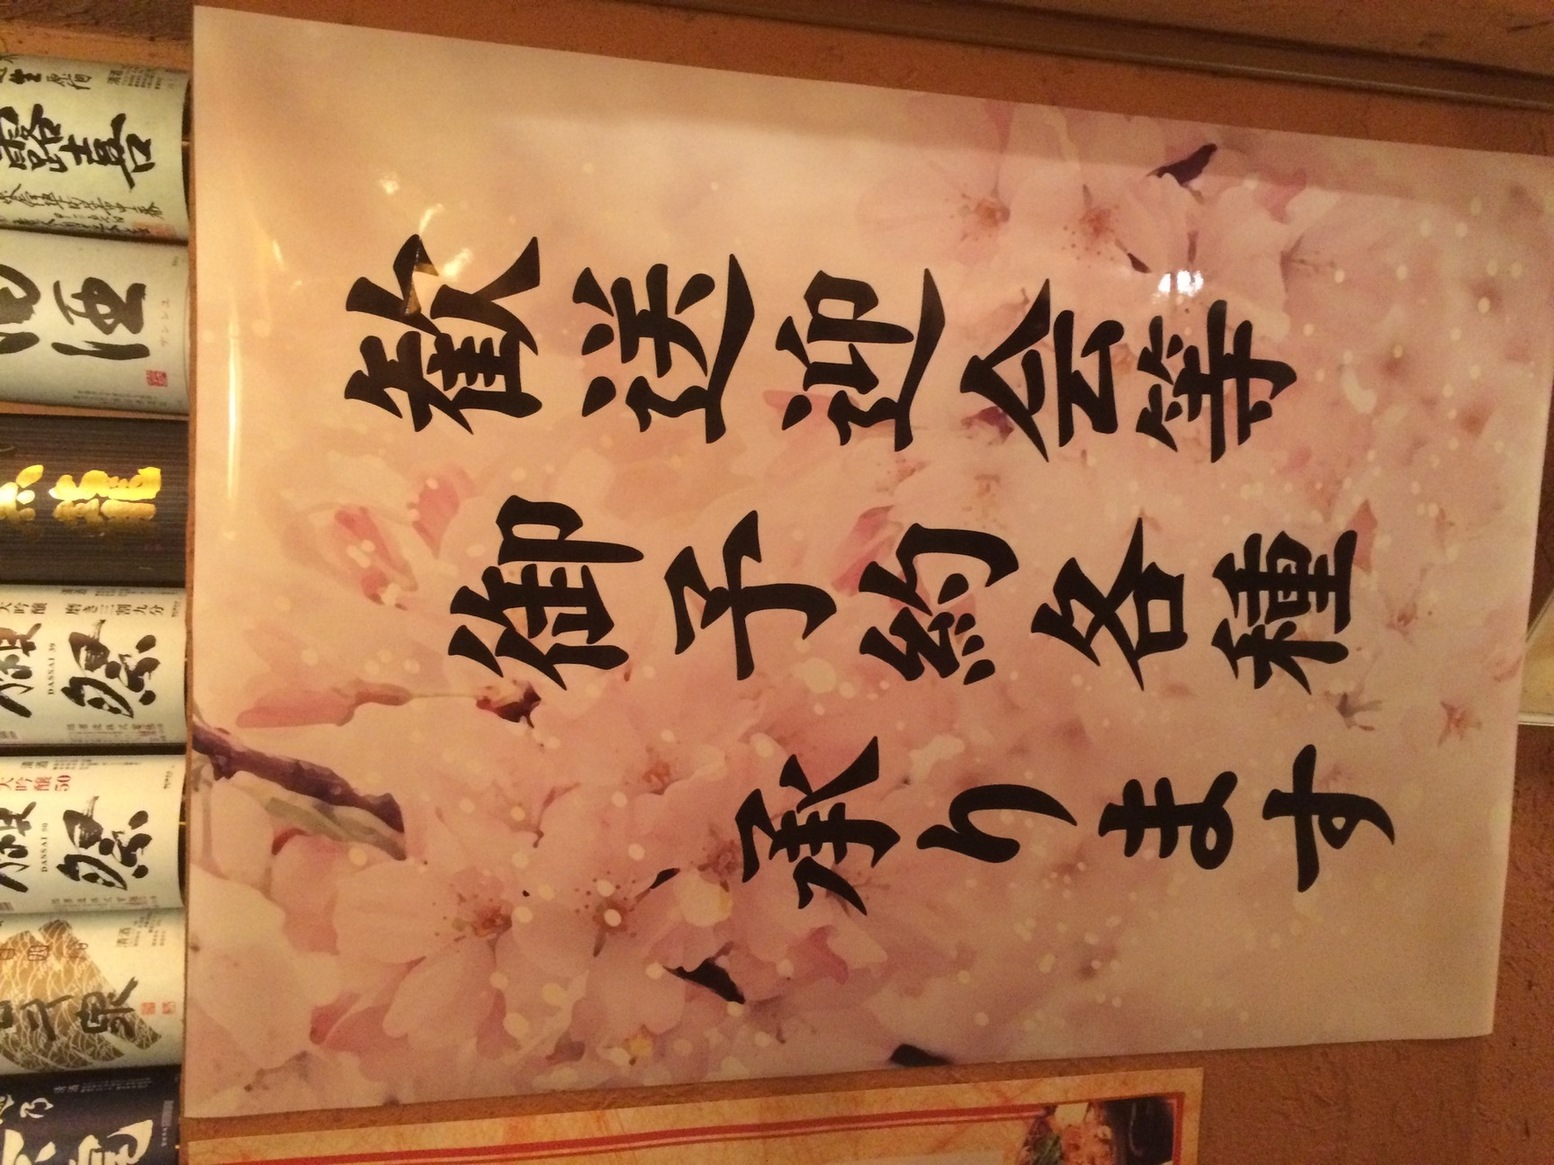 露喜
酒
龍
磨き三割九分
大吟醸
獺祭
DASSAI 39
大吟醸
50
獺祭
DASSAI 50
泉
歓送迎会等
御予約各種
承ります